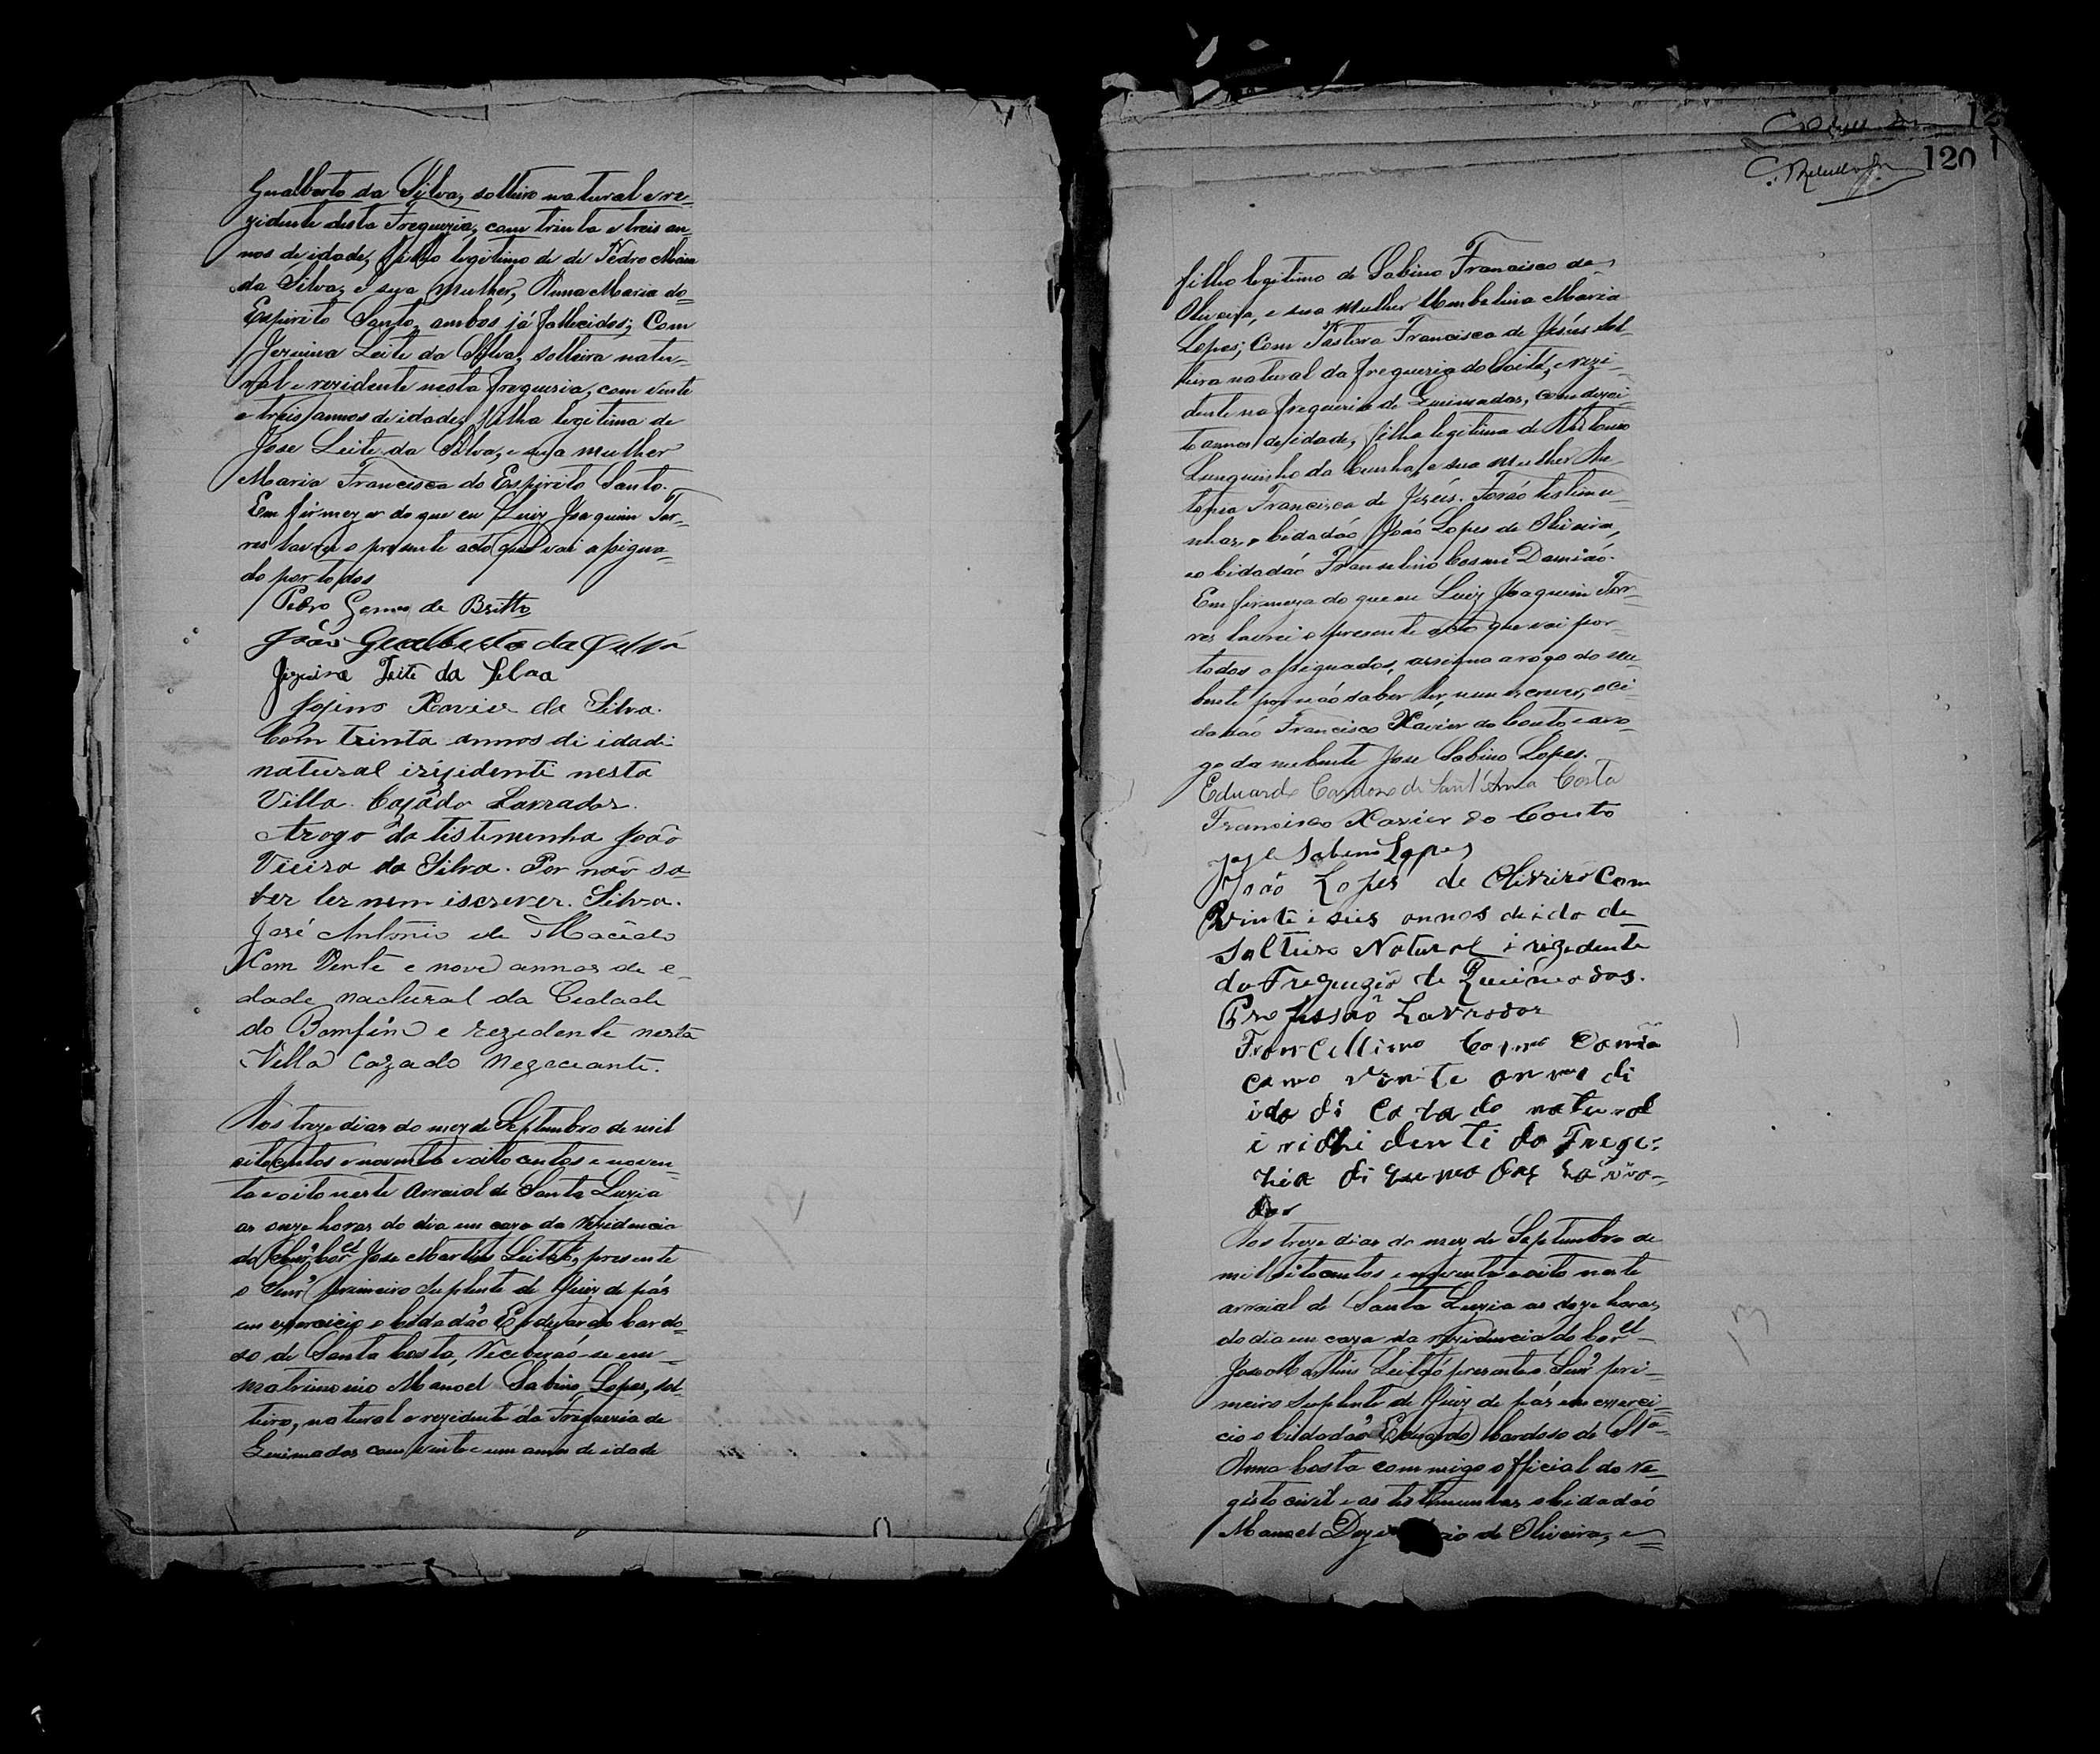 Gualberto da Silva, solteiro natural e re-
zidente desta Freguezia, com trinta e treis an-
nos de idade, filho legitimo de de Pedro
da Silva, e sua mulher, Anna Maria do
Espirito Santo, ambos já fallecidos; Com
Jezuina Leite da Silva, solteira natu-
ral e rezidente nesta freguezia, com vinte
e treis annos de idade, filha legitima de
Jose Leite da Silva, e sua mulher
Maria Francisca do Espirito Santo.
Em firmeza do que eu Luiz Joaquim Tor-
res lavrei o prezente acto que vai assigna-
do por todos
Pedro Gomes de Britto
João Gualberto da Silva
Jezuina Leite da Silva
Xavier da Silva.
Com trinta annos di idadi
natural irizidenti nesta
Villa. Cazado Lavrador.
Arogo da tistemunha João
Vieira da Silva. Por não sa-
ber ler nem iscrever. Silva.
José Antonio de Macêdo
Com Vente e nove annos de e-
dade nactural da Cedade
do Bomfim e rezedente nesta
Villa Cazado Negoceante.
Aos treze dias do mez de Septembro de mil
oitocentos e noventa e oitocentos e noven-
ta e oito neste Arraial de Santa Luzia
as onze horas do dia em caza da rezidencia
do Senr. Corel Jose Martins Leitão, presente
o Senr. primeiro Suplente de Juiz de páz
em exercicio o Cidadão Eduardo Cardo-
so de Santa Costa, Receberão-se em
matrimonio Manoel Sabino Lopes, sol-
teiro, natural e rezidente da Freguezia de
Queimadas com vinte e um annos de idade
120
filho legitimo de Sabino Francisco de
Oliveira, e sua mulher Umbelina Maria
Lopes; Com Pastora Francisca de Jesús sol-
teira natural da freguezia do Coité, e rezi-
dente na freguezia de Queimadas, com dezoi-
to annos de idade, filha legitima de Antonio
da Cunha, e sua mulher An-
tonia Francisca de Jezús. Forão testemu-
nhas, o Cidadão João Lopes de Oliveira,
e o Cidadão Francelino Cosme Damião.
Em firmeza do que eu Luiz Joaquim Tor-
res lavrei o presente acto que vai por
todos assignados, assigna a rogo do nu-
bente por não saber ler, nem escrever, o ci-
dadão Francisco Xavier do Couto e aro-
go da nubente Jose Sabino Lopes.
Eduardo Cardoso de Sant'Anna Costa
Francisco Xavier do Couto
José Sabino Lopes
João Lopes de Oliveira Com
Vinte i seis annos de ida de
Solteiro Natural i rizedente
da Freguezia de Queimadas.
Profissão Lavrador
Francellino Cosme Damia
como vinte annos di
ida di Cazado natural
i rizhi denti da Frege-
zia di quemadas Lavra-
dor
Aos treze dias do mez de Septembro de
mil oitocentos e noventa e oito neste
arraial de Santa Luzia as doze horas
do dia em caza da rezidencia do Corel
Jose Martins Leitão presente o Senr. pri-
meiro Suplente de Juiz de páz em exerci-
cio o Cidadão Eduardo Cardoso de Sta.
Anna Costa commigo official do re-
gisto civil e as testemunhas o Cidadão
Manoel de Oliveira, e
13